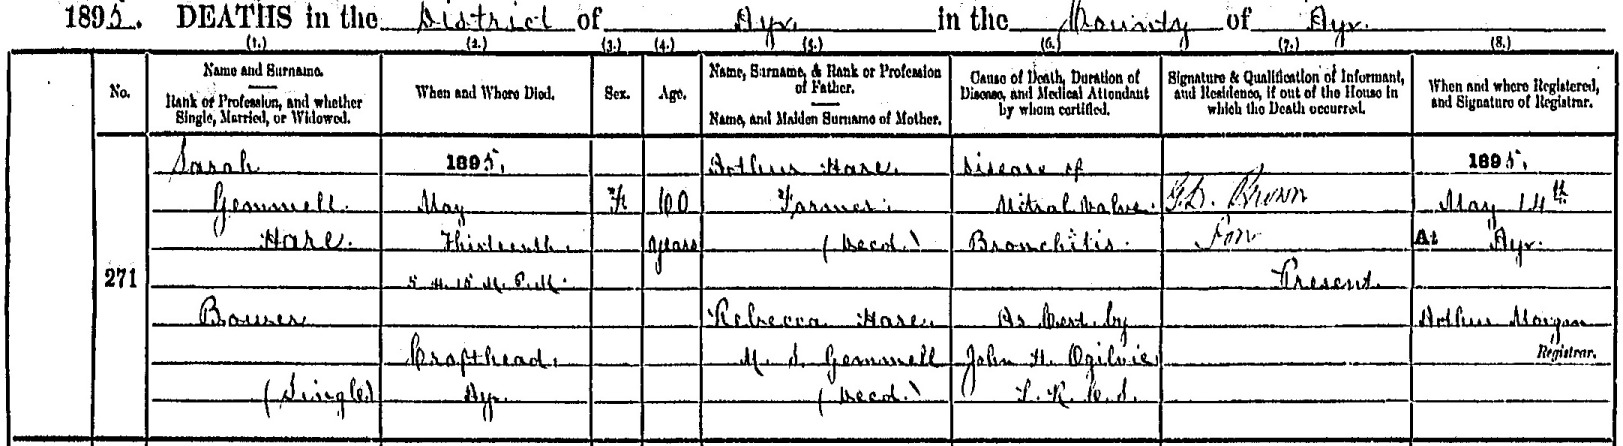 1895. DEATHS in the District of Ayr. in the County of Ayr.
(1.) (2.) (3.) (4.) (5.) (6.) (7.) (8.)
No.
Name and Surname.
Rank or Profession, and whether
Single, Married, or Widowed.
When and Where Died.
Sex.
Age.
Name, Surname, & Rank or Profession
of Father.
Name, and Maiden Surname of Mother.
Cause of Death, Duration of
Disease, and Medical Attendant
by whom certified.
Signature & Qualification of Informant,
and Residence, if out of the House in
which the Death occurred.
When and where Registered,
and Signature of Registrar.
271
Sarah
Gemmell
Hare.
(Single)
1895.
May
Thirteenth.
5 h. 15 m. P.M.
Crofthead,
Ayr.
F.
100
years
Arthur Hare.
Farmer.
(Decd.)
Rebecca Hare,
M. S. Gemmell
(Decd.)
Disease of
Mitral Valve.
Bronchitis.
As Cert. by
John H. Ogilvie
Brown
Son
Present.
1895.
May 14th
At Ayr.
Arthur Morgan
Registrar.